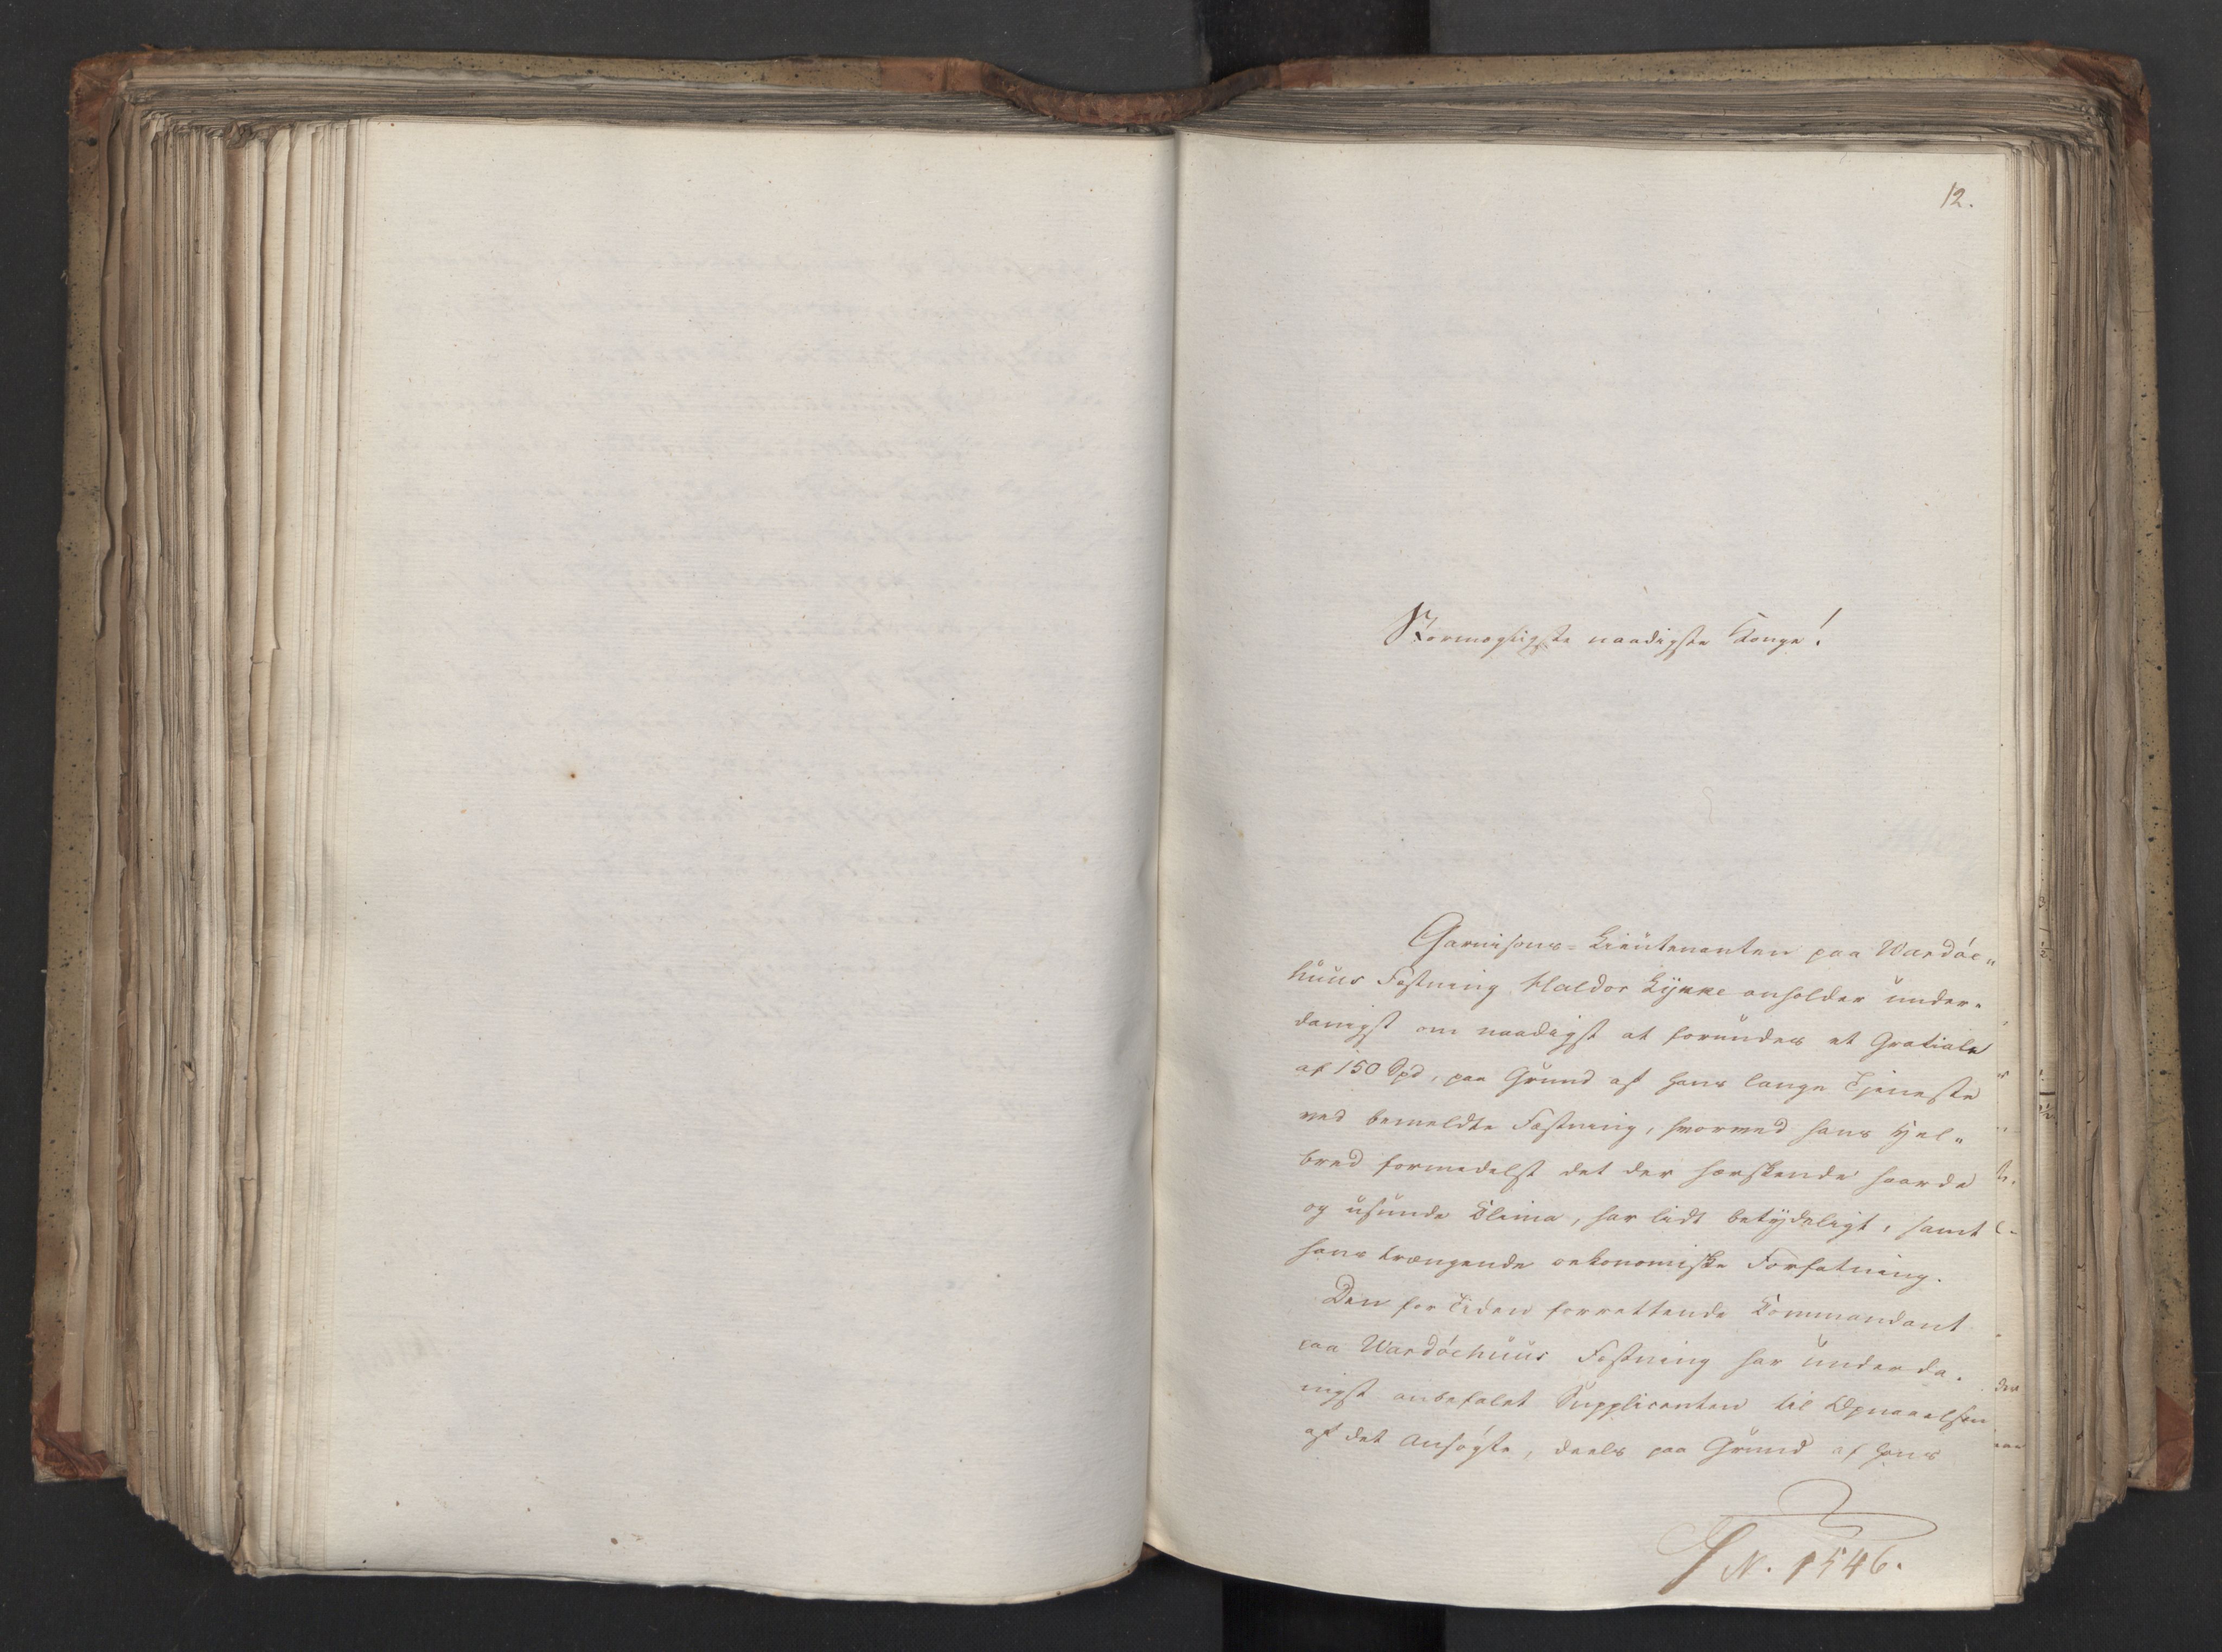 12.
Stormægtigste naadigste Konge!
Garnisons-Lieutenanten paa Wardöe„
huus Festning Haldor Lykke anholder under-
danigst om naadigst at forundes et Gratiale
af 150 Spd, paa Grund af hans lange Tjeneste
ved bemeldte Festning, hvorved hans Hel„
bred formedelst det der herskende haarde
og usunde Clima, har lidt betydeligt, samt
hans trængende oekonomiske Forfatning.
Den for Tiden forrettende Commandant
paa Wardöehuus Festning har underda-
nigst anbefalet Supplicanten til Opnaaelsen
af det Ansögte, deels paa Grund af hans
N. 1546.